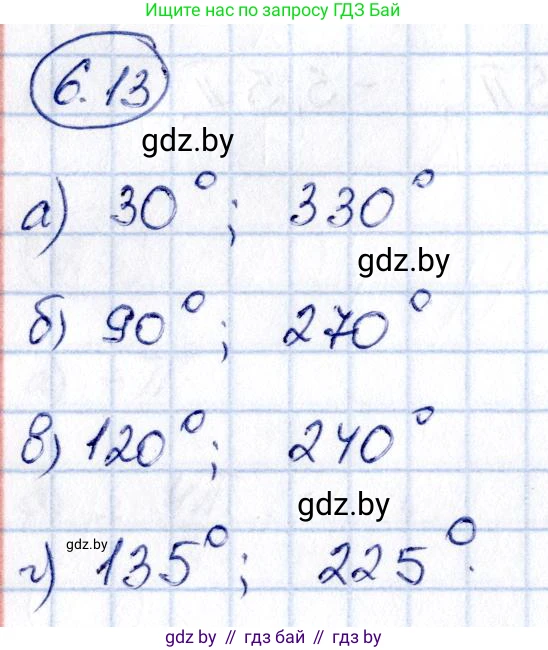 Ищите нас по запросу ГДЗ Бай
6.13
gdz.by
а) 30°; 330°
gdz.by
б) 90°; 270°
в) 120°; 240°
gdz.by
gdz.by
г) 135°; 225°.
gdz.by // гдз бай // гдз.by